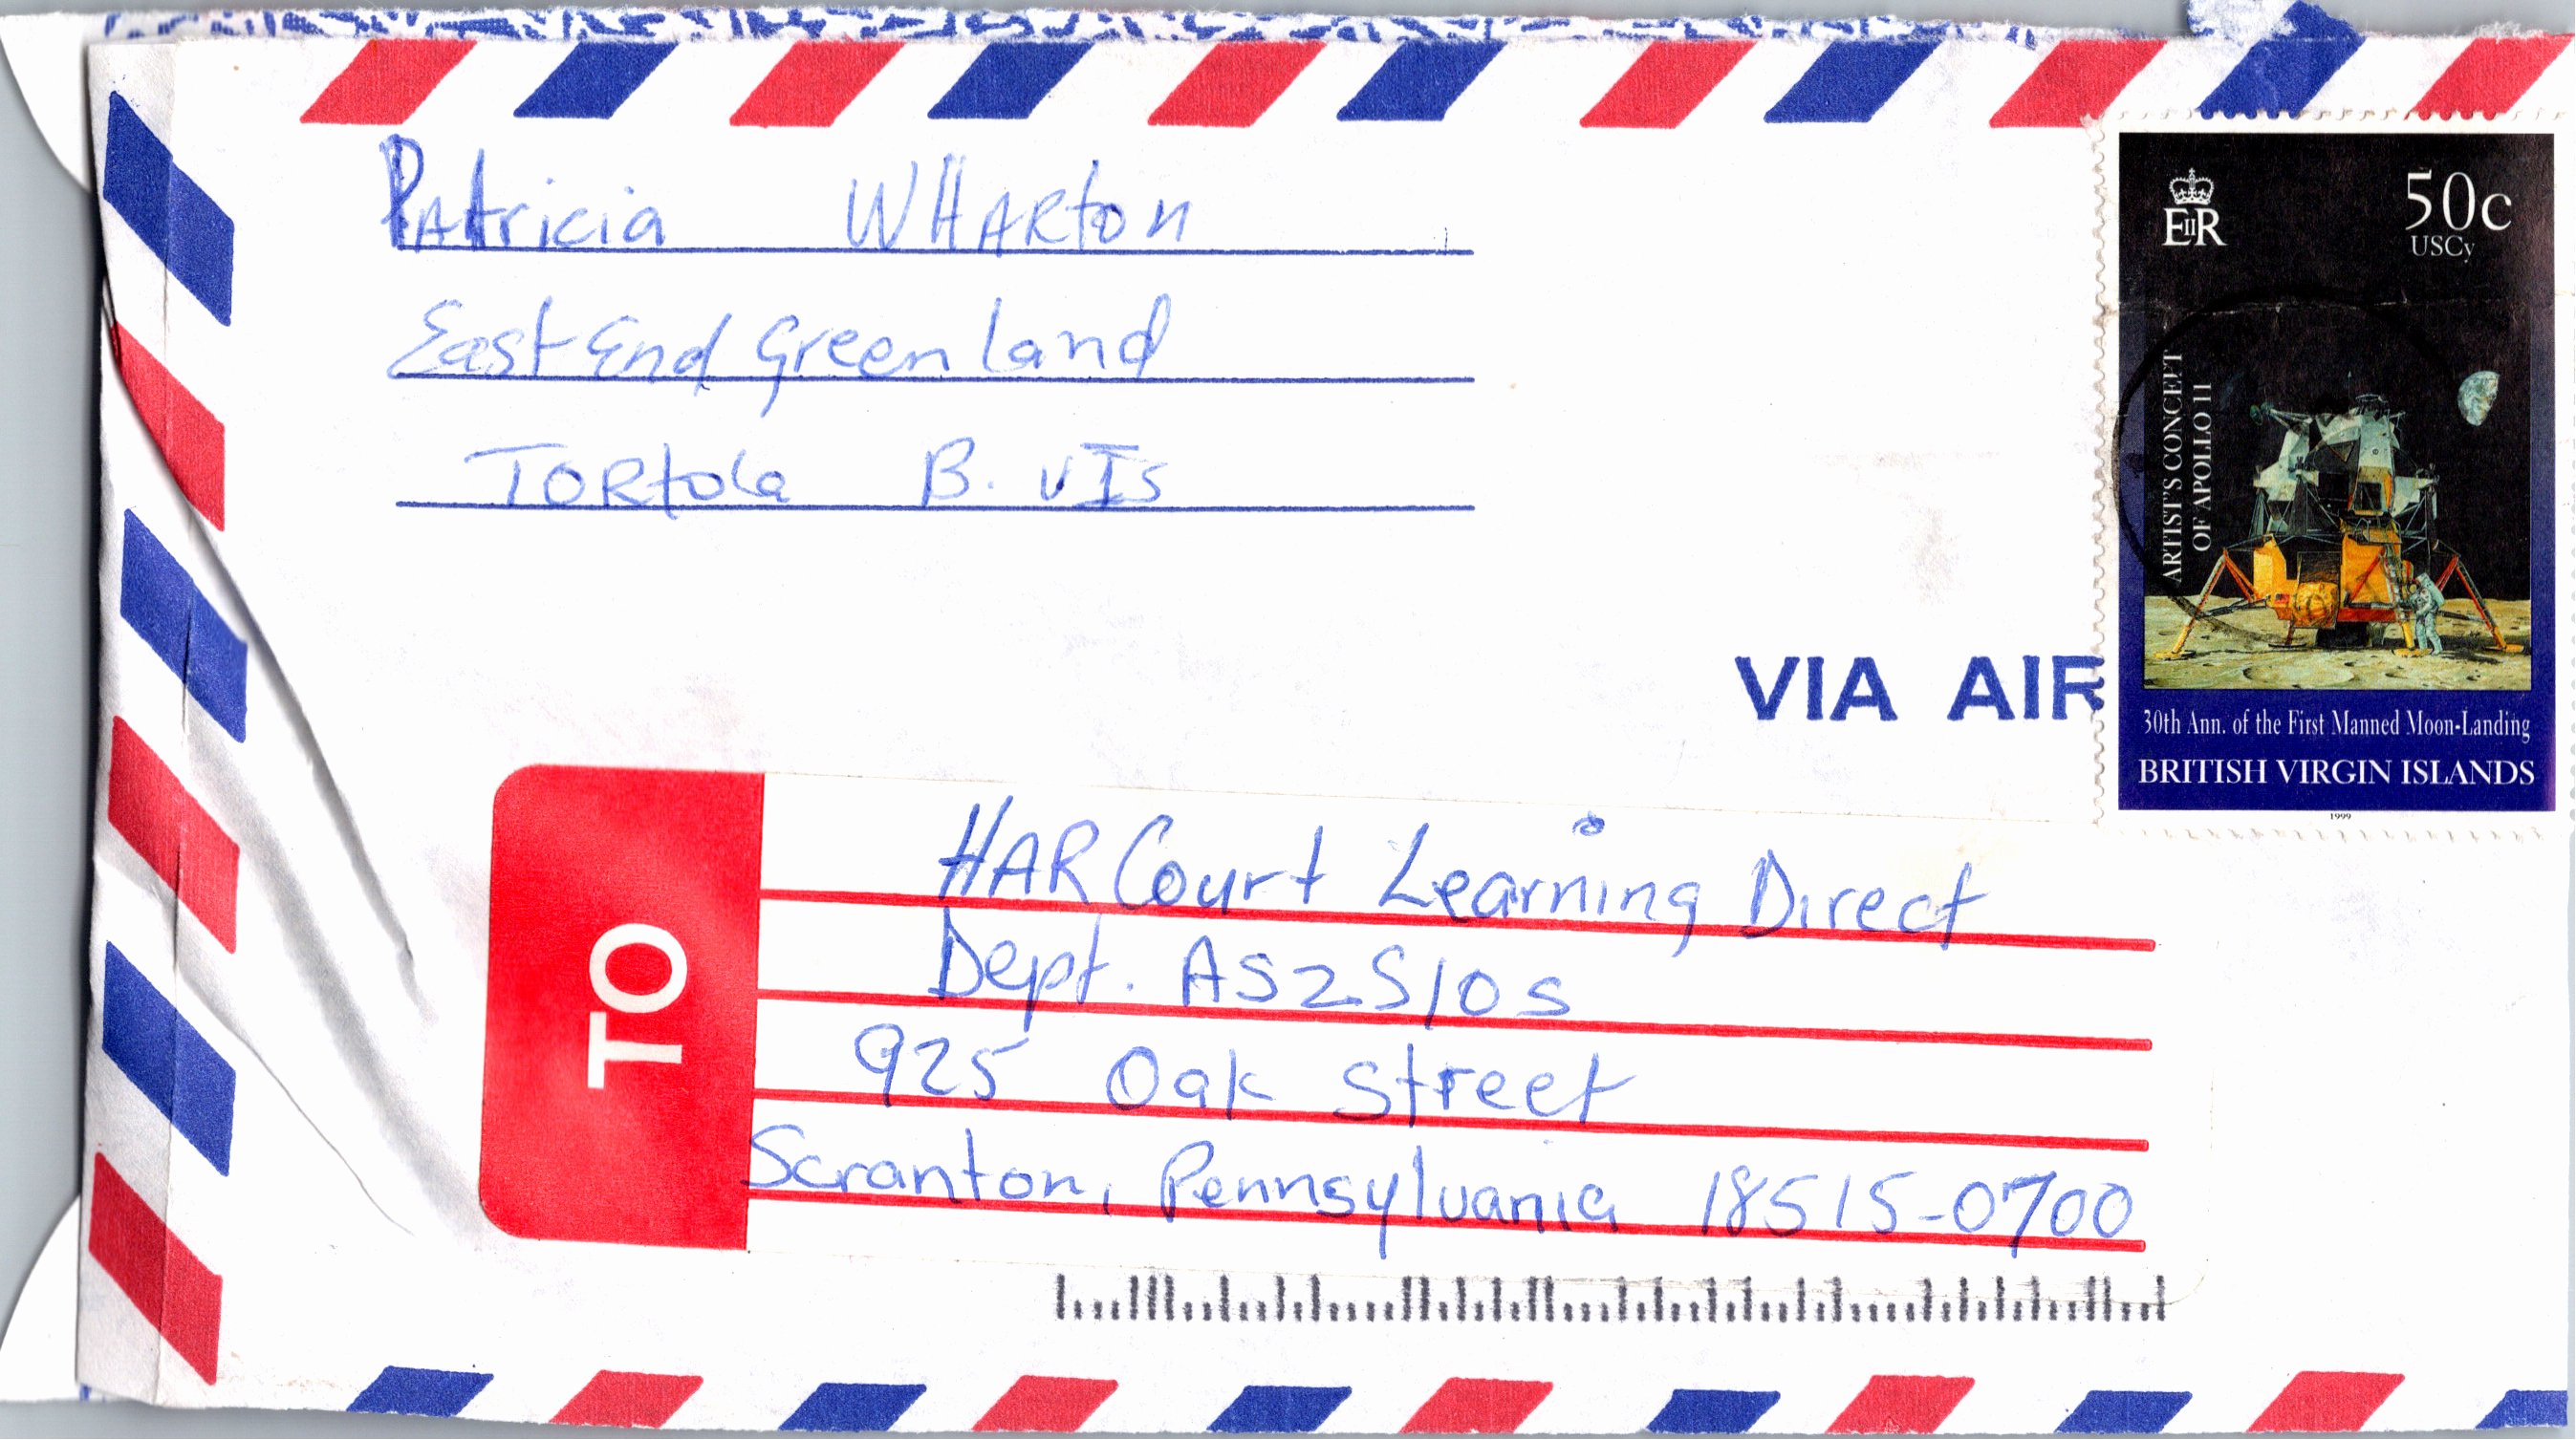 PAtricia WHARton
East End Greenland
TORtola B. VIs
EIIR
50c
USCy
ARTIST'S CONCEPT
OF APOLLO 11
30th Ann. of the First Manned Moon-Landing
BRITISH VIRGIN ISLANDS
1999
VIA AIR
TO
HARCourt Learning Direct
Dept. AS2S10S
925 Oak Street
Scranton, Pennsylvania 18515-0700